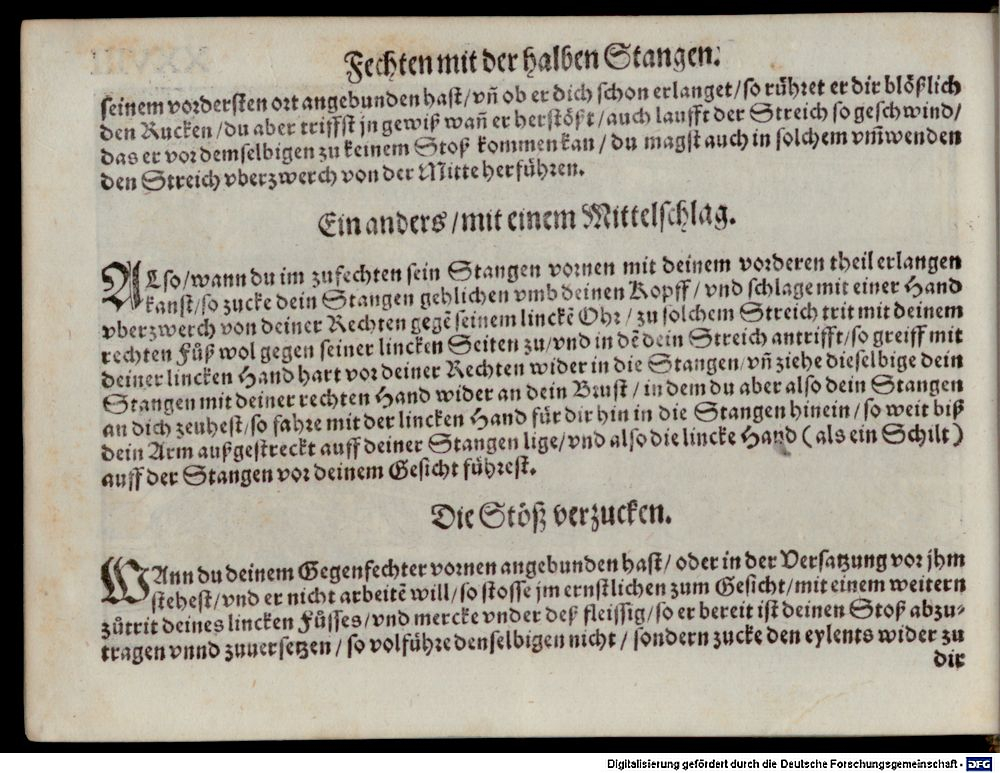 Fechten mit der halben Stangen.
seinem vordersten ort angebunden hast/ vñ ob er dich schon erlanget/ so rühret er dir blößlich
den Rucken/ du aber triffst jn gewiß wañ er herstößt/ auch laufft der Streich so geschwind/
das er vor demselbigen zu keinem Stoß kommen kan/ du magst auch in solchem vm̃wenden
den Streich vberzwerch von der Mitte herführen.
Ein anders/ mit einem Mittelschlag.
ALso/ wann du im zufechten sein Stangen vornen mit deinem vorderen theil erlangen
kanst/ so zucke dein Stangen gehlichen vmb deinen Kopff/ vnd schlage mit einer Hand
vberzwerch von deiner Rechten gegẽ seinem linckẽ Ohr/ zu solchem Streich trit mit deinem
rechten Fůß wol gegen seiner lincken Seiten zu/ vnd in dẽ dein Streich antrifft/ so greiff mit
deiner lincken Hand hart vor deiner Rechten wider in die Stangen/ vñ ziehe dieselbige dein
Stangen mit deiner rechten Hand wider an dein Brust/ in dem du aber also dein Stangen
an dich zeuhest/ so fahre mit der lincken Hand für dir hin in die Stangen hinein/ so weit biß
dein Arm außgestreckt auff deiner Stangen lige/ vnd also die lincke Hand (als ein Schilt)
auff der Stangen vor deinem Gesicht führest.
Die Stöß verzucken.
WAnn du deinem Gegenfechter vornen angebunden hast/ oder in der Versatzung vor jhm
stehest/ vnd er nicht arbeitẽ will/ so stosse jm ernstlichen zum Gesicht/ mit einem weitern
zůtrit deines lincken Fůsses/ vnd mercke vnder deß fleissig/ so er bereit ist deinen Stoß abzu-
tragen vnnd zuuersetzen/ so volführe denselbigen nicht/ sondern zucke den eylents wider zu
dir
Digitalisierung gefördert durch die Deutsche Forschungsgemeinschaft - DFG